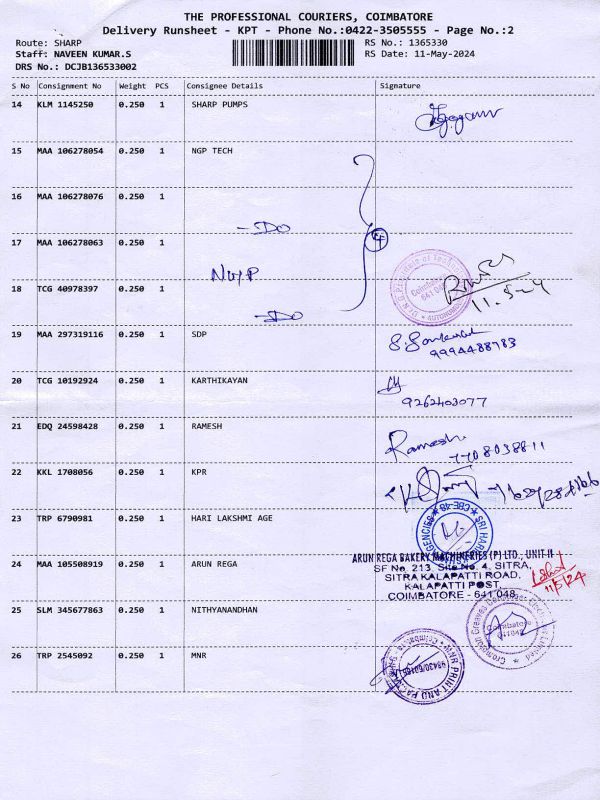 THE PROFESSIONAL COURIERS, COIMBATORE
Delivery Runsheet - KPT - Phone No.:0422-3505555 - Page No.:2
Route: SHARP
RS No.: 1365330
Staff: NAVEEN KUMAR.S
RS Date: 11-May-2024
DRS No.: DCJB136533002
S No Consignment No Weight PCS Consignee Details Signature
14 KLM 1145250 0.250 1 SHARP PUMPS
15 MAA 106278054 0.250 1 NGP TECH
16 MAA 106278076 0.250 1
-DO
17 MAA 106278063 0.250 1
4
NGP
18 TCG 40978397 0.250 1
Coimbatore
641 048
AUTONOMOUS
11.5-24
-DO
19 MAA 297319116 0.250 1 SDP
9994488783
20 TCG 10192924 0.250 1 KARTHIKAYAN
9262403077
21 EDQ 24598428 0.250 1 RAMESH
Ramesh
7708038811
22 KKL 1708056 0.250 1 KPR
23 TRP 6790981 0.250 1 HARI LAKSHMI AGE
SRI HARI AGENCIES CBE-48
24 MAA 105508919 0.250 1 ARUN REGA
ARUN REGA BAKERY MACHINERIES (P) LTD., UNIT II
SF No. 213, Site No. 4, SITRA,
SITRA KALAPATTI ROAD,
KALAPATTI POST,
COIMBATORE - 641 048
11/5/24
25 SLM 345677863 0.250 1 NITHYANANDHAN
Coimbatore
26 TRP 2545092 0.250 1 MNR
MNR PRINT AND PACK
Coimbatore